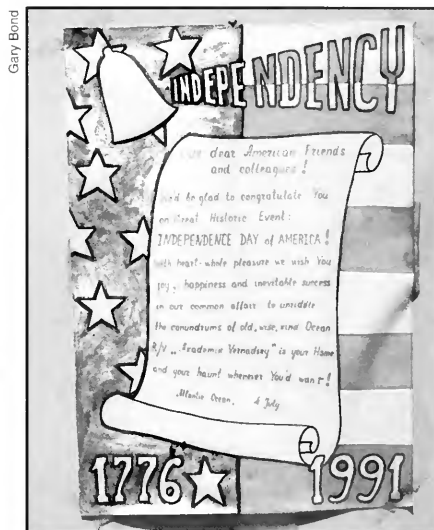 Gary Bond
INDEPENDENCY
Our dear American Friends
and colleagues!
We'd be glad to congratulate You
on Great Historic Event:
INDEPENDENCE DAY of AMERICA!
With heart-whole pleasure we wish You
joy, happiness and inevitable success
in our common affair to unriddle
the conundrums of old, wise, kind Ocean
R/V „Academic Vernadsky" is your Home
and your haunt wherever You'd want!
Atlantic Ocean, 4 July
1776 1991